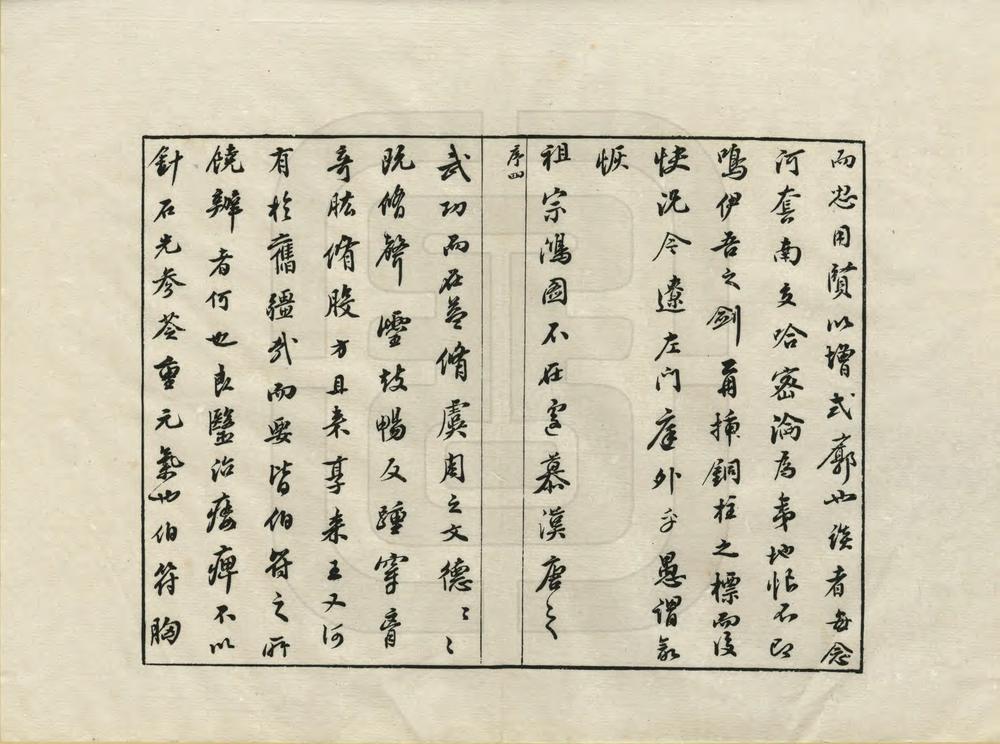 而思用賢以增式廓也談者每念
河套南交哈密淪為夷地恨不即
鳴伊吾之劍再揷銅柱之標而後
快況今遼左門庭外乎愚謂敦
恢
祖宗鴻圖不在遠慕漢唐之
序四
武功而在益脩虞周之文德〻〻
既脩聲靈鼓暢反踵穿胷
奇肱脩股方且來享來王又何
有於舊疆哉而要皆伯符之所
饒辦者何也良醫治痿痺不以
針石先參苓重元氣也伯符胸